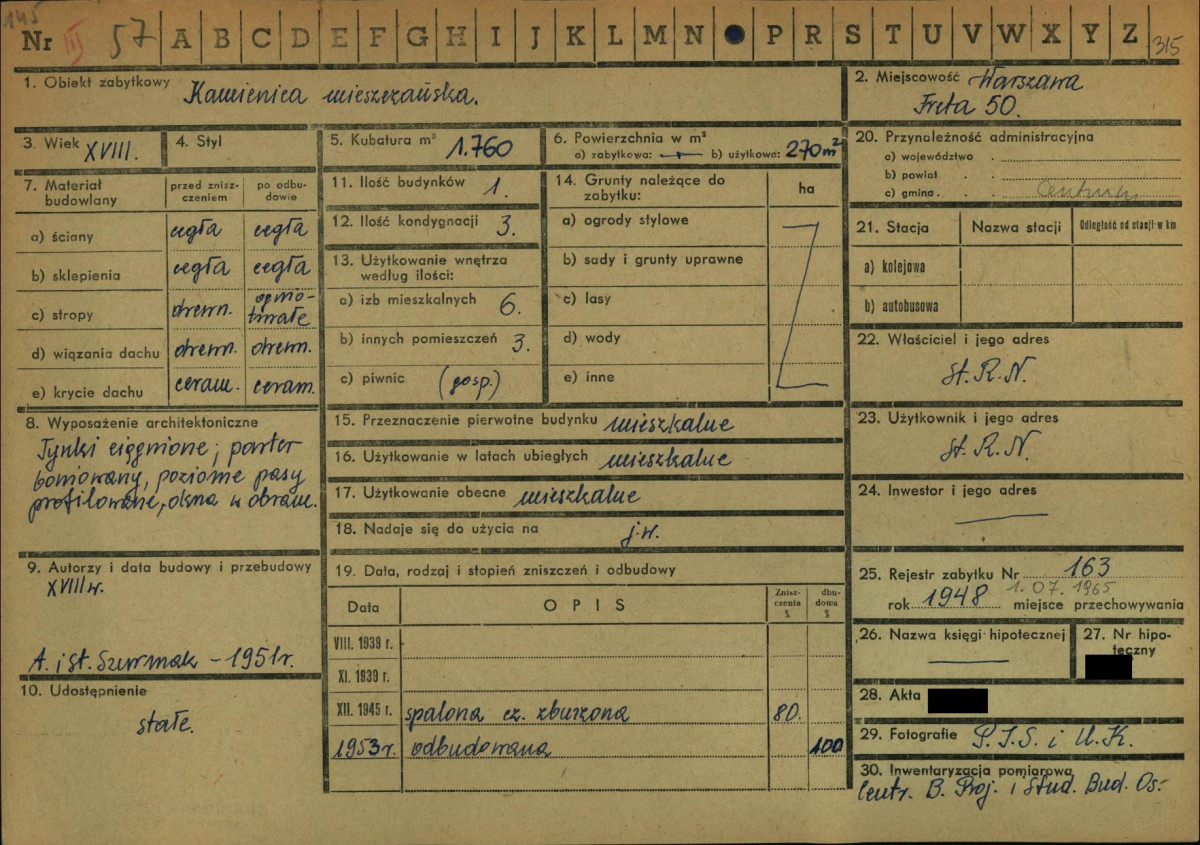 145
Nr III 57 A B C D E F G H I J K L M N P R S T U V W X Y Z 315
1. Obiekt zabytkowy Kamienica mieszczańska.
2. Miejscowość Warszawa
Freta 50.
3. Wiek XVIII.
4. Styl
5. Kubatura m³ 1.760
6. Powierzchnia w m²
a) zabytkowa: — b) użytkowa: 270 m²
20. Przynależność administracyjna
a) województwo
b) powiat
c) gmina
7. Materiał budowlany
przed zniszczeniem
po odbudowie
a) ściany cegła cegła
b) sklepienia cegła cegła
c) stropy drewn. ogniotrwałe
d) wiązania dachu drewn. drewn.
e) krycie dachu ceram. ceram.
11. Ilość budynków 1.
12. Ilość kondygnacji 3.
13. Użytkowanie wnętrza
według ilości:
a) izb mieszkalnych 6.
b) innych pomieszczeń 3.
c) piwnic (gosp.)
14. Grunty należące do
zabytku:
ha
a) ogrody stylowe
b) sady i grunty uprawne
c) lasy
d) wody
e) inne
21. Stacja Nazwa stacji Odległość od stacji w km
a) kolejowa
b) autobusowa
22. Właściciel i jego adres
St. R. N.
8. Wyposażenie architektoniczne
Tynki ciągnione; parter
boniowany, poziome pasy
profilowane, okna w obram.
15. Przeznaczenie pierwotne budynku mieszkalne
16. Użytkowanie w latach ubiegłych mieszkalne
17. Użytkowanie obecne mieszkalne
18. Nadaje się do użycia na j.w.
23. Użytkownik i jego adres
St. R. N.
24. Inwestor i jego adres
—
9. Autorzy i data budowy i przebudowy
XVIII w.
A. i St. Szurmak – 1951 r.
10. Udostępnienie
stałe.
19. Data, rodzaj i stopień zniszczeń i odbudowy
Data OPIS Zniszczenia % dbudowa %
VIII. 1939 r.
XI. 1939 r.
XII. 1945 r. spalona cz. zburzona 80.
1953 r. odbudowana 100
25. Rejestr zabytku Nr 163
1.07.1965
rok 1948 miejsce przechowywania
26. Nazwa księgi hipotecznej
—
27. Nr hipoteczny
28. Akta
29. Fotografie P.I.S. i U.K.
30. Inwentaryzacja pomiarowa
Centr. B. Proj. i Stud. Bud. Os.